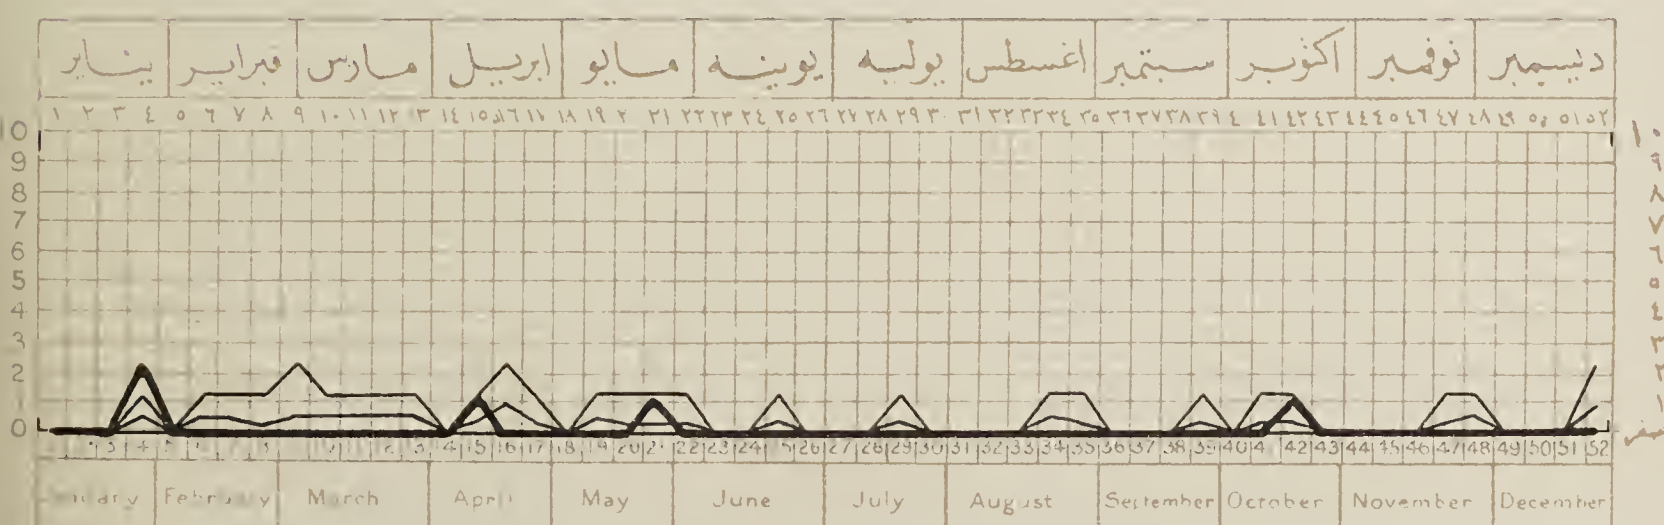 يناير فبراير مارس ابريل مايو يونيه يوليه اغسطس سبتمبر اكتوبر نوفمبر ديسمبر
١ ٢ ٣ ٤ ٥ ٦ ٧ ٨ ٩ ١٠ ١١ ١٢ ١٣ ١٤ ١٥ ١٦ ١٧ ١٨ ١٩ ٢٠ ٢١ ٢٢ ٢٣ ٢٤ ٢٥ ٢٦ ٢٧ ٢٨ ٢٩ ٣٠ ٣١ ٣٢ ٣٣ ٣٤ ٣٥ ٣٦ ٣٧ ٣٨ ٣٩ ٤٠ ٤١ ٤٢ ٤٣ ٤٤ ٤٥ ٤٦ ٤٧ ٤٨ ٤٩ ٥٠ ٥١ ٥٢
10 ١٠
9 ٩
8 ٨
7 ٧
6 ٦
5 ٥
4 ٤
3 ٣
2 ٢
1 ١
0 صفر
3 4 13 14 15 16 17 18 19 20 21 22 23 24 25 26 27 28 29 30 31 32 33 34 35 36 37 38 39 40 41 42 43 44 45 46 47 48 49 50 51 52
February March April May June July August September October November December